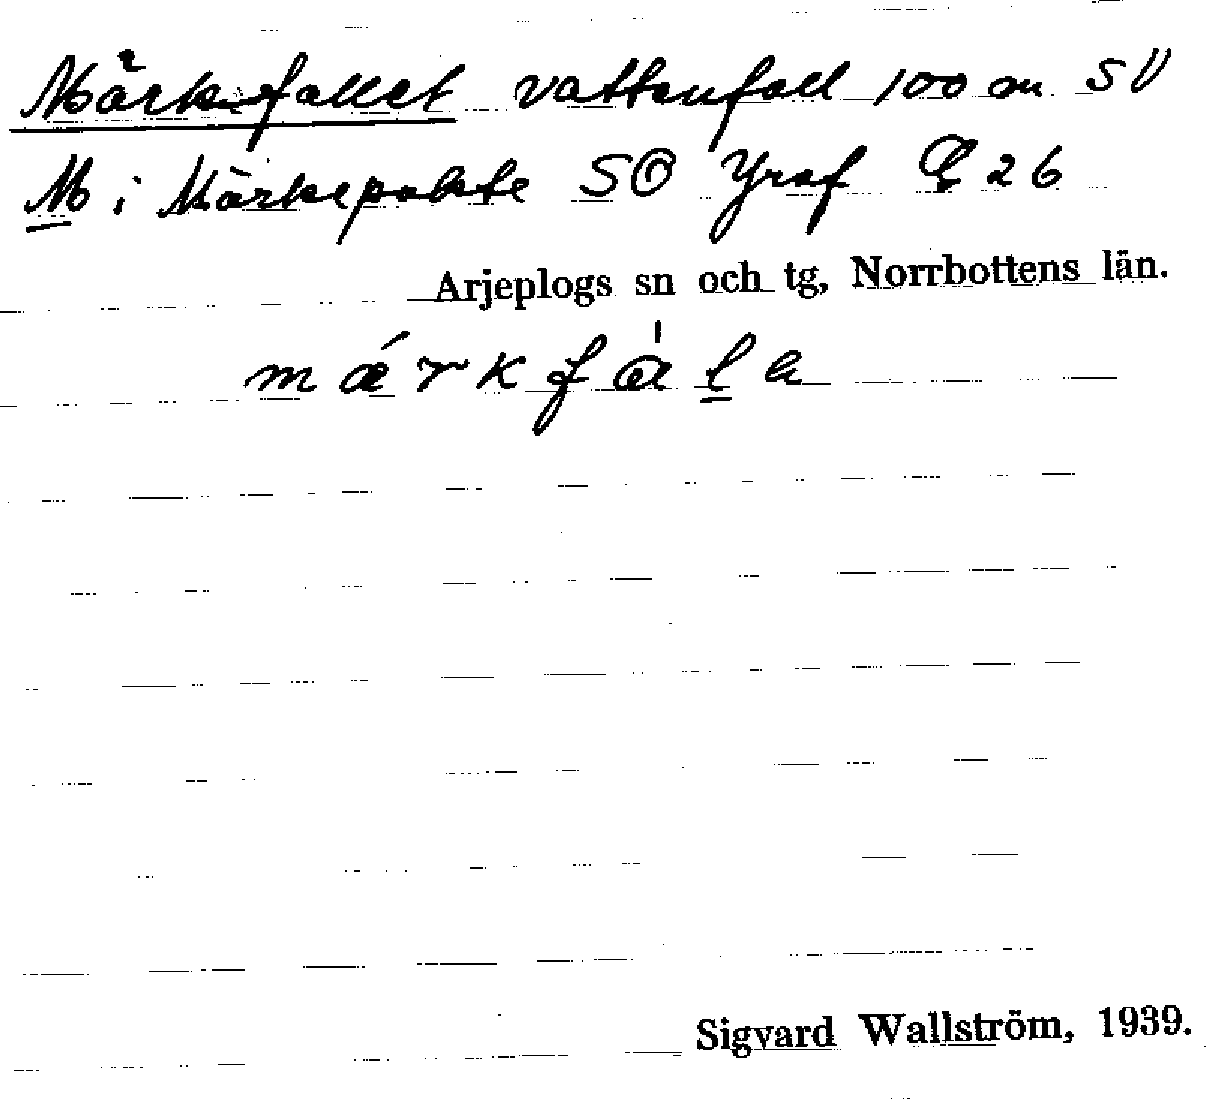 Märkfallet vattenfall 100 m SV
M i Märkepakte SO Graf C 26
Arjeplogs sn och tg, Norrbottens län.
mǽrkfála
Sigvard Wallström, 1939.